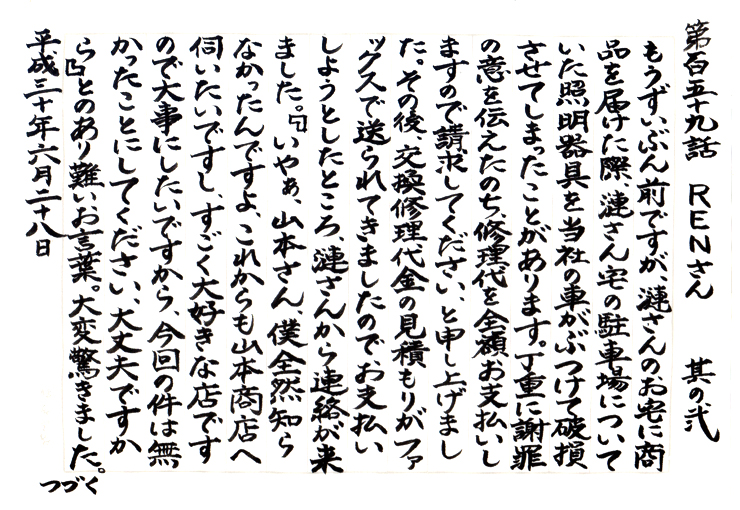 第百五十九話 RENさん 其の弐
もうずいぶん前ですが、漣さんのお宅に商
品を届けた際、漣さん宅の駐車場について
いた照明器具を当社の車がぶつけて破損
させてしまったことがあります。丁重に謝罪
の意を伝えたのち修理代を全額お支払いし
ますので請求してください、と申し上げまし
た。その後、交換修理代金の見積もりがファ
ックスで送られてきましたのでお支払い
しようとしたところ、漣さんから連絡が来
ました。「いやぁ、山本さん、僕全然知ら
なかったんですよ、これからも山本商店へ
伺いたいですし、すごく大好きな店です
ので大事にしたいですから、今回の件は無
かったことにしてください、大丈夫ですか
ら」とのあり難いお言葉。大変驚きました。
平成三十年六月二十八日
つづく